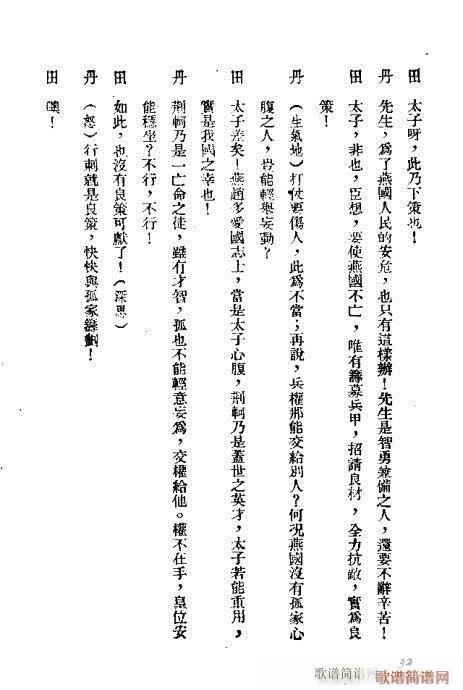 田　太子呀，此乃下策也！
丹　先生，爲了燕國人民的安危，也只有這樣辦！先生是智勇兼備之人，還要不辭辛苦！
田　太子，非也，臣想，要使燕國不亡，唯有籌募兵甲，招請良材，全力抗敵，實爲良
策！
丹　（生氣地）打仗要傷人，此爲不當；再說，兵權那能交給別人？何况燕國沒有孤家心
腹之人，豈能輕舉妄動？
田　太子差矣！燕趙多愛國志士，當是太子心腹，荆軻乃是蓋世之英才，太子若能重用，
實是我國之幸也！
丹　荆軻乃是一亡命之徒，雖有才智，孤也不能輕意妄爲，交權給他。權不在手，皇位安
能穩坐？不行，不行！
田　如此，也沒有良策可獻了！（深思）
丹　（怒）行刺就是良策，快快與孤家籌劃！
田　噢！
32
歌谱简谱网
歌谱简谱网
www.jianpu.cn